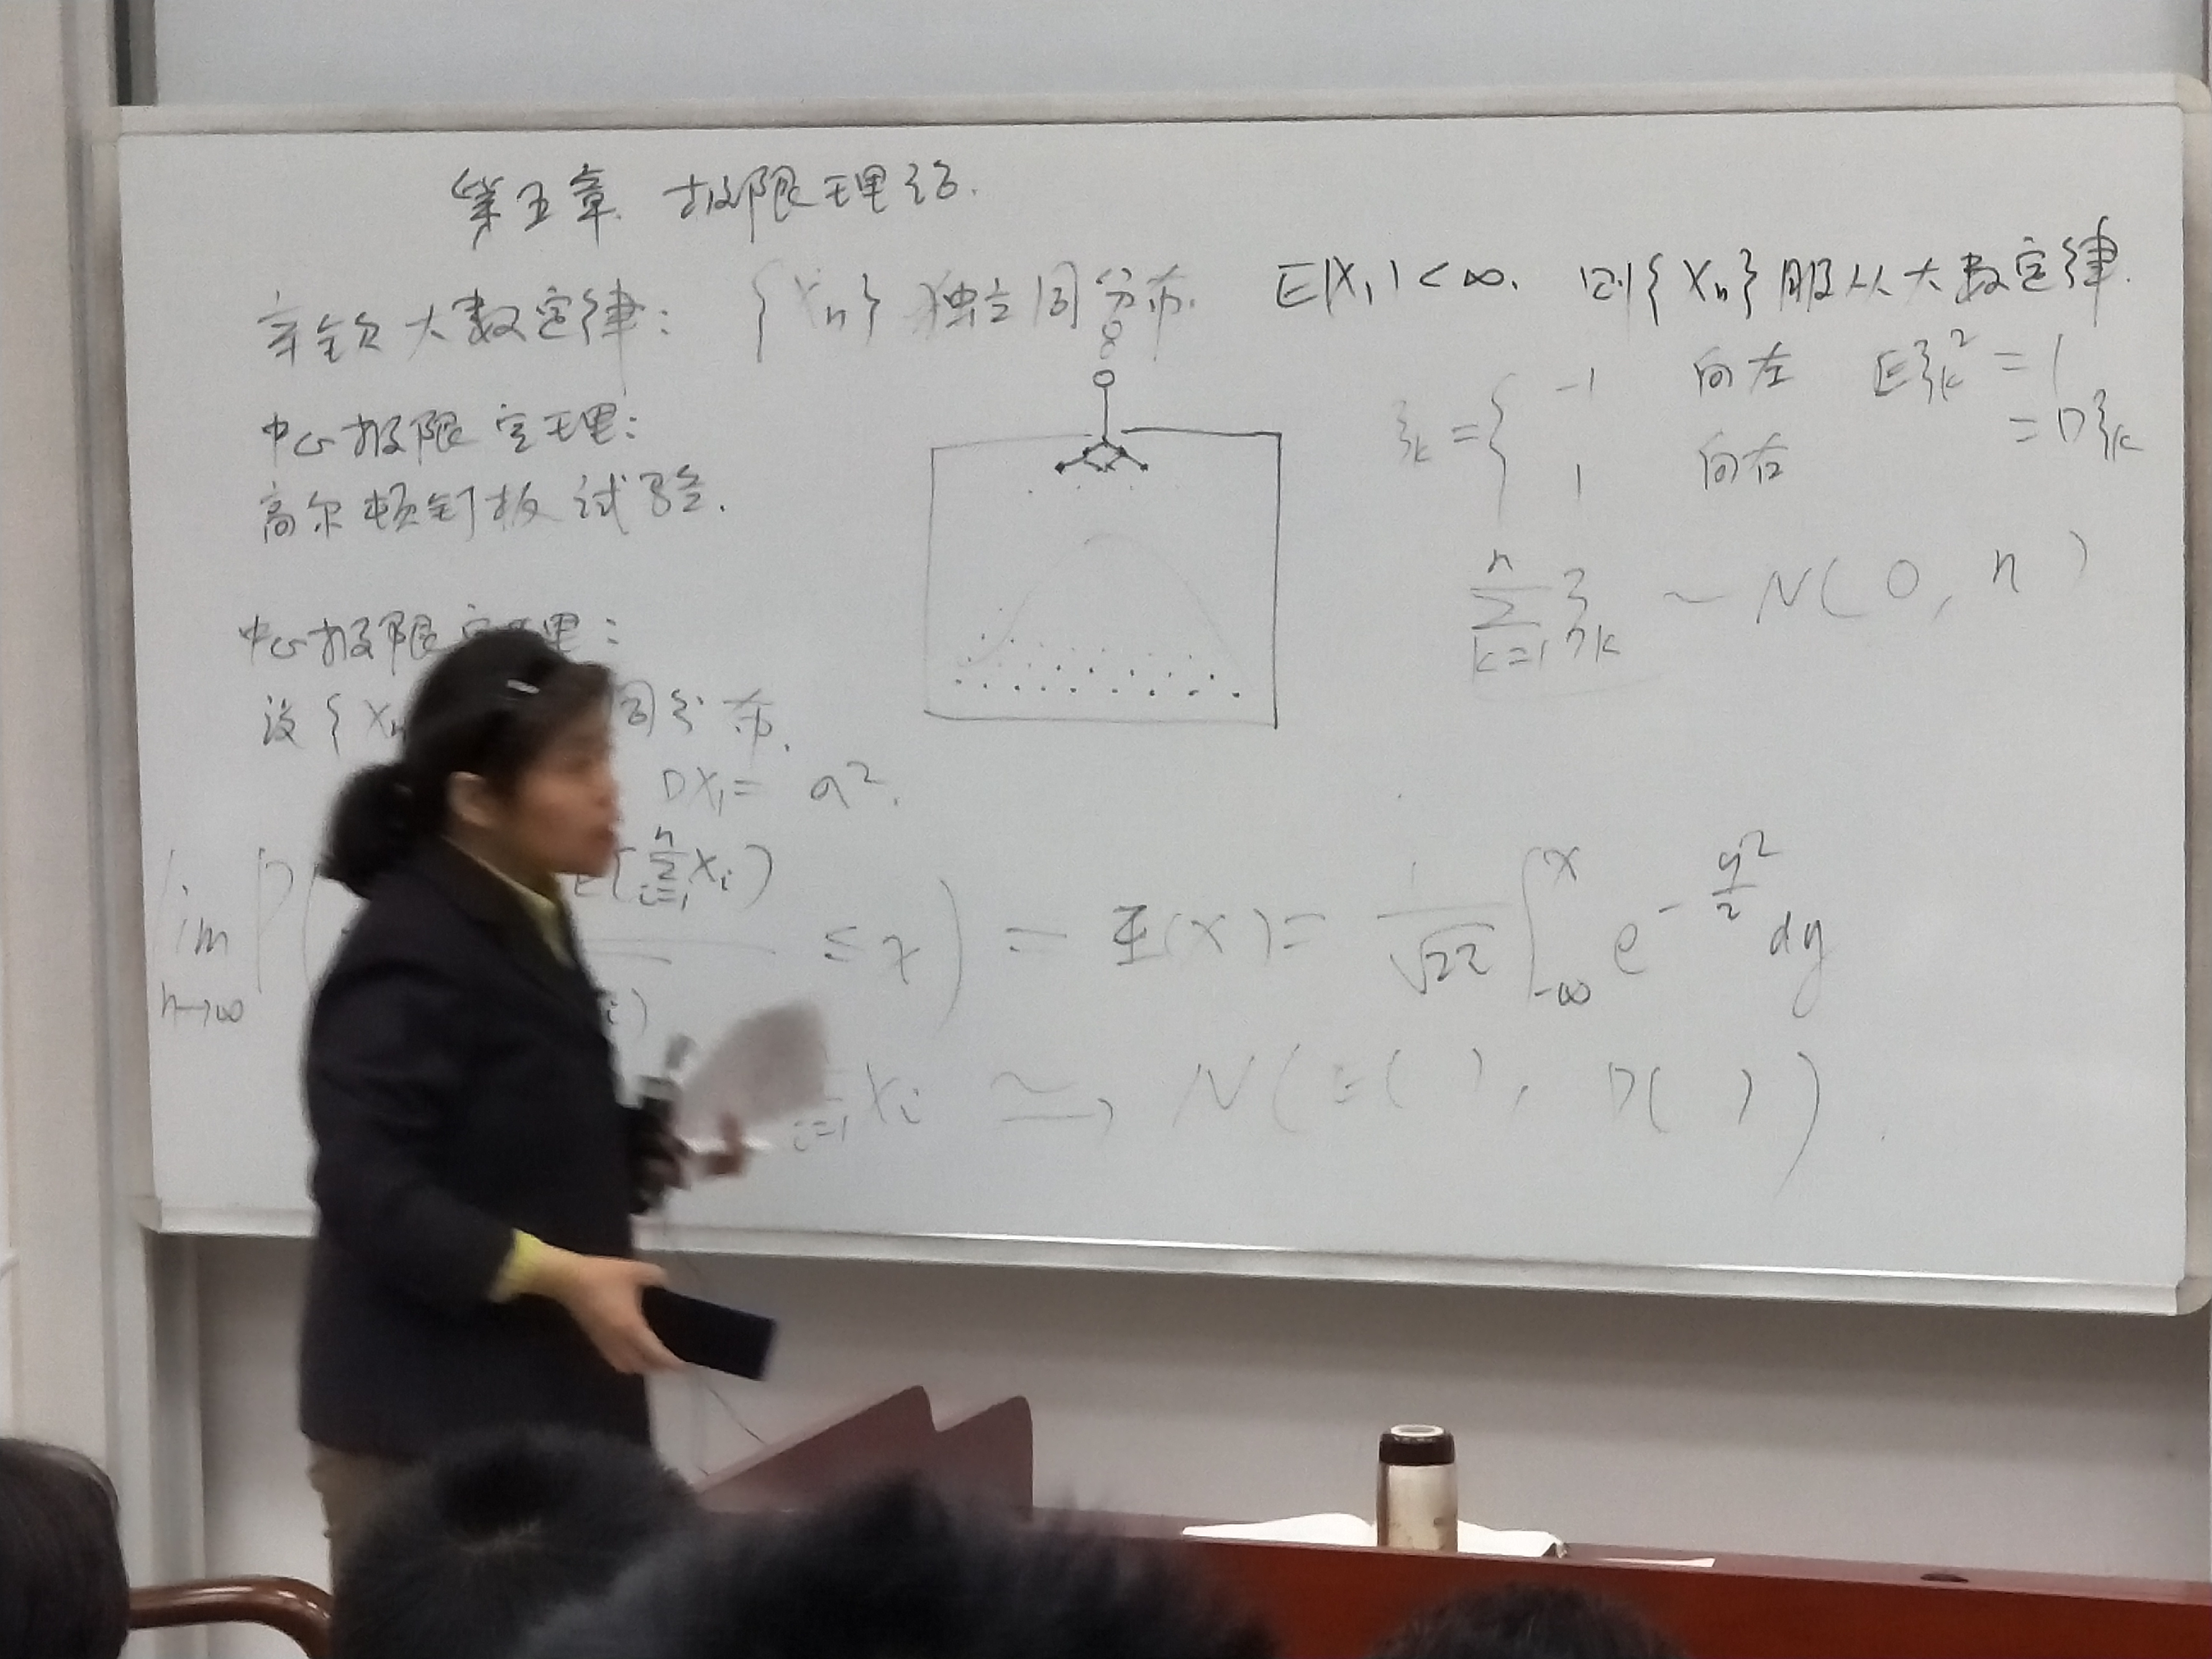 第五章 极限理论.
辛钦大数定律: {Xn} 独立同分布. E|X₁|<∞. 则{Xn}服从大数定律.
中心极限定理:
高尔顿钉板试验.
ξk = { -1 向左
1 向右
Eξk² = 1
= Dξk
∑_{k=1}^{n} ξk ~ N(0, n)
中心极限定理:
设{Xn 同分布.
DX₁ = σ².
lim_{n→∞} P( E(∑_{i=1}^{n} Xi) ≤ x) = Φ(x) = 1/√2π ∫_{-∞}^{x} e^{-y²/2} dy
i=1 Xi ≃ N(E( ), D( )).